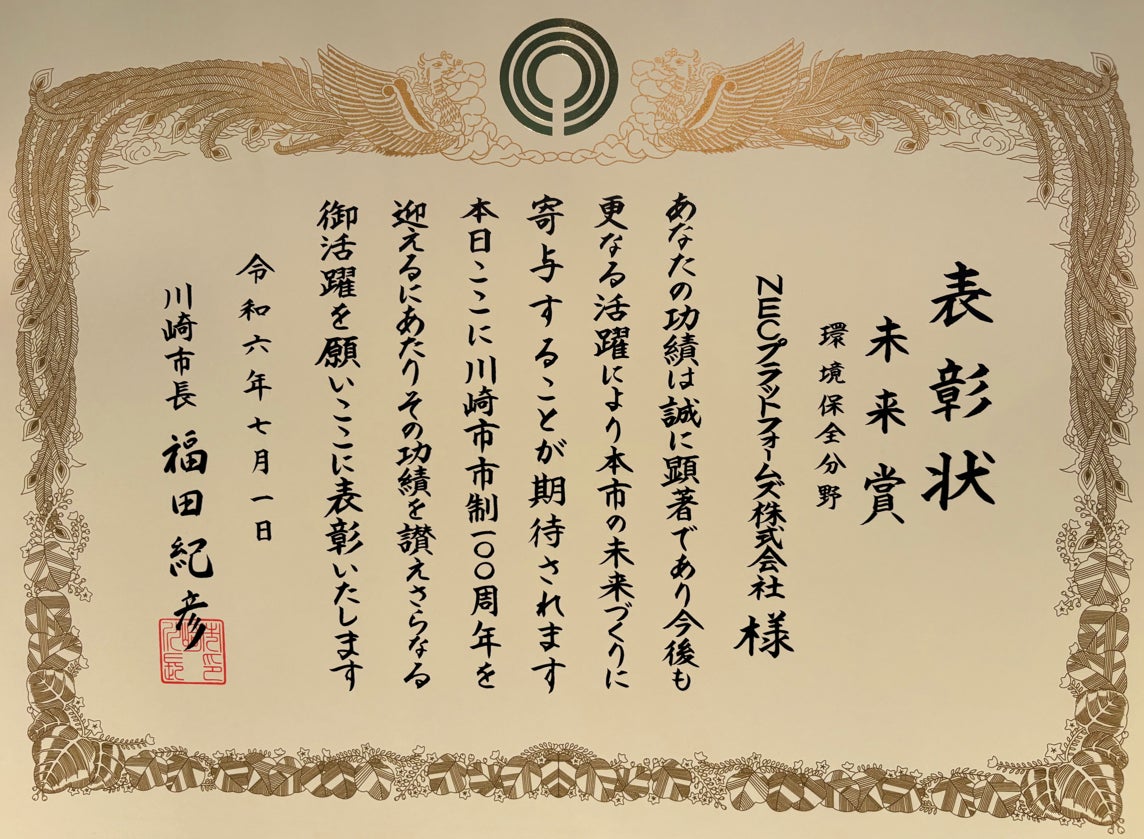 表彰状
未来賞
環境保全分野
NECプラットフォームズ株式会社 様
あなたの功績は誠に顕著であり今後も
更なる活躍により本市の未来づくりに
寄与することが期待されます
本日ここに川崎市市制一〇〇周年を
迎えるにあたりその功績を讃えさらなる
御活躍を願いここに表彰いたします
令和六年七月一日
川崎市長 福田紀彦